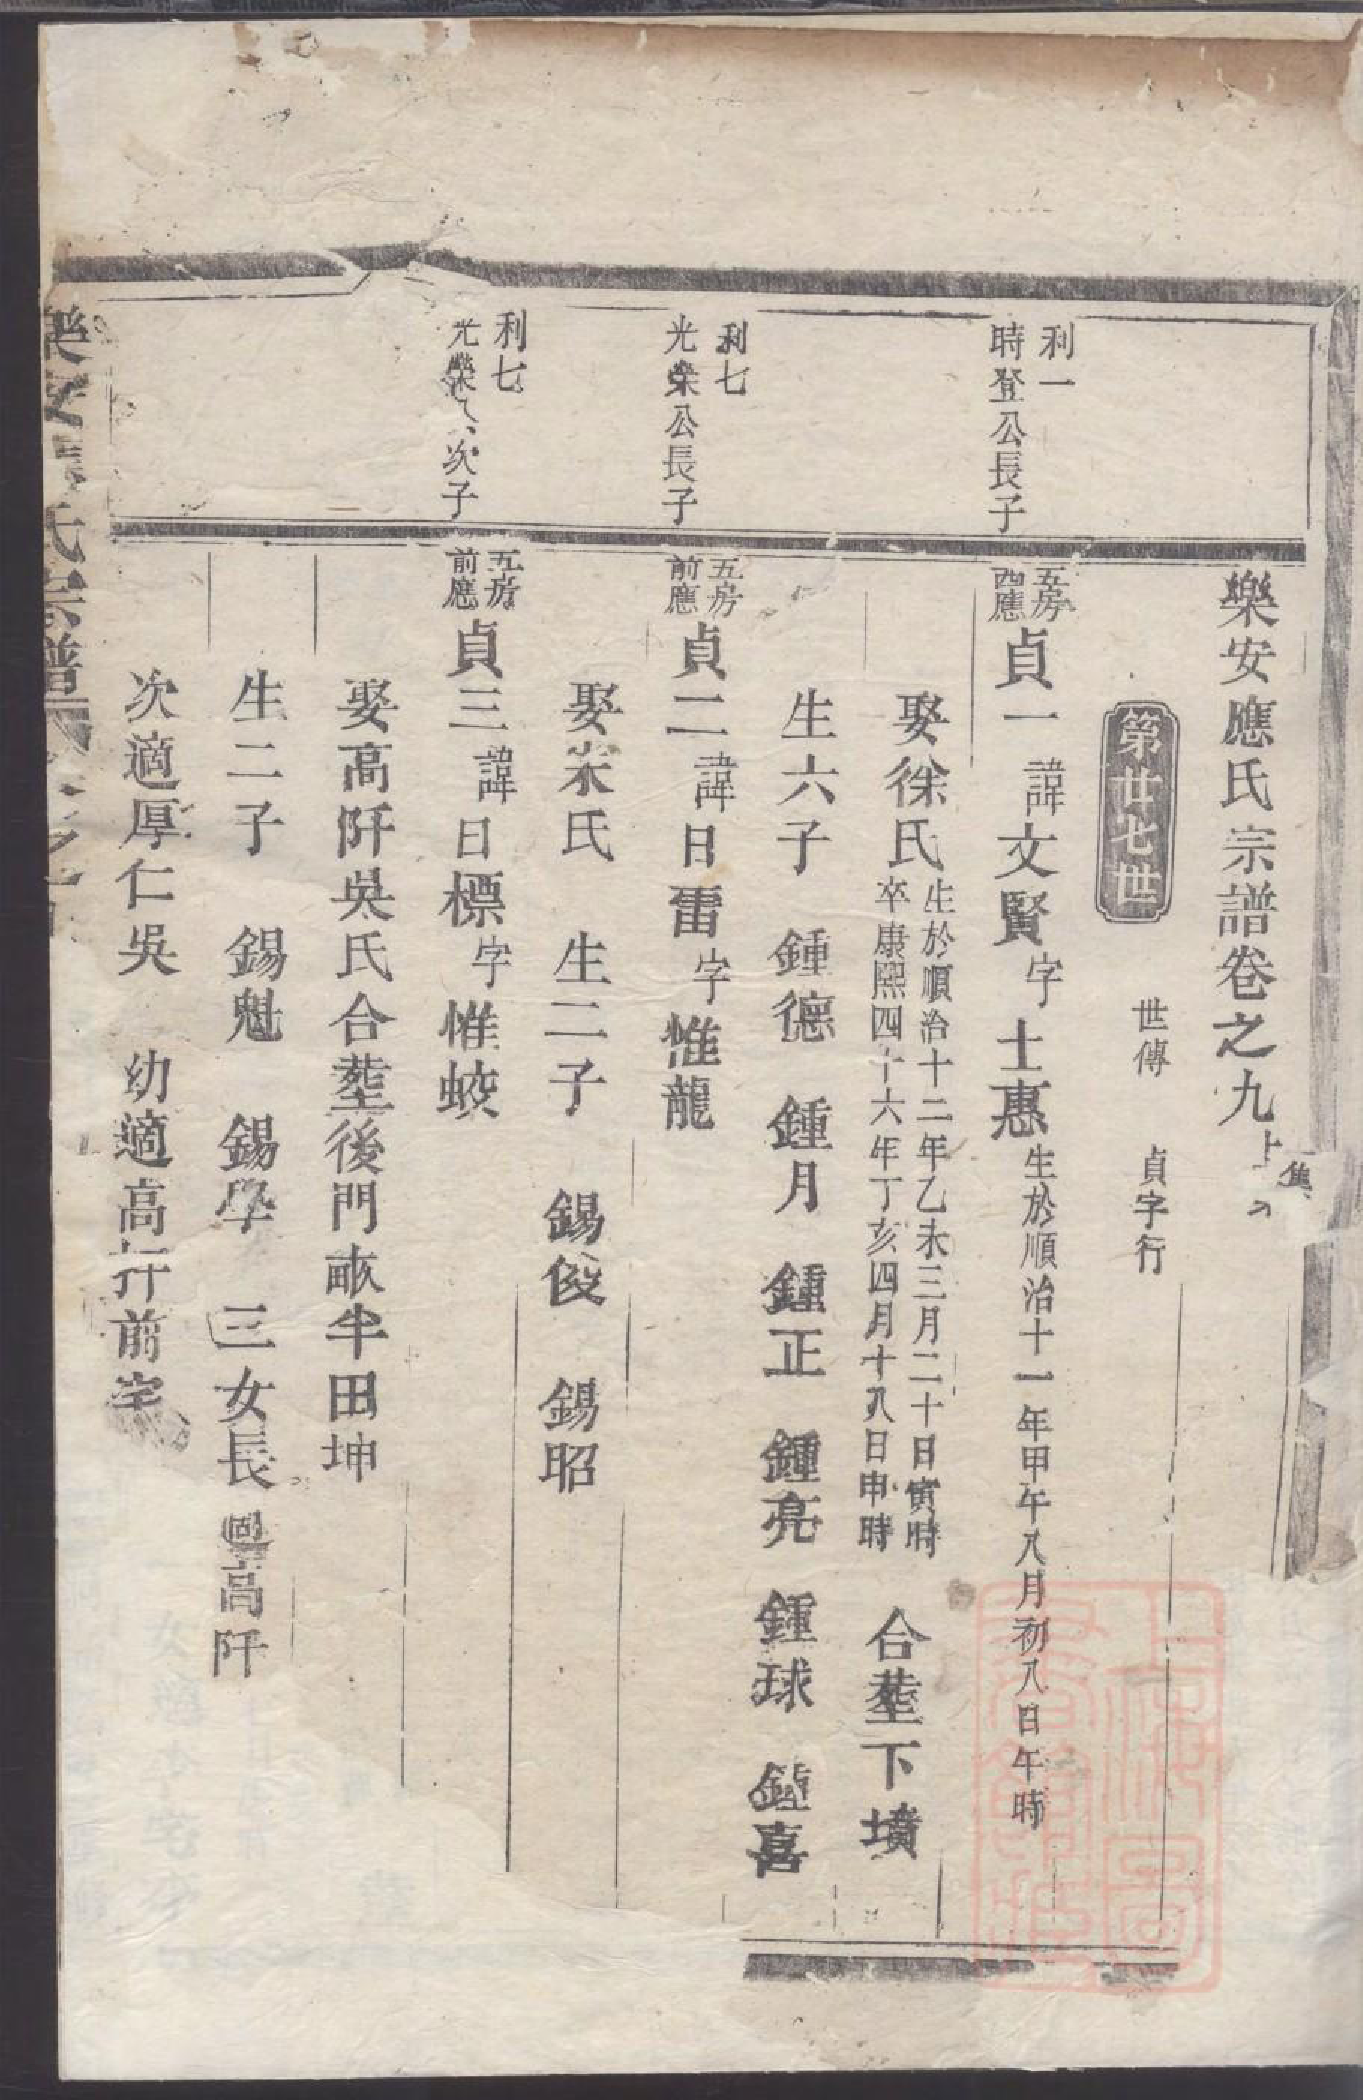 樂安應氏宗譜卷之九上集
第廿七世
世傳 貞字行
利一
時登公長子
五房
西應
貞一諱文賢字士惠生於順治十一年甲午八月初八日午時
娶徐氏
生於順治十二年乙未三月二十日寅時
卒康熙四十六年丁亥四月十八日申時
合塟下墳
生六子 鍾德 鍾月 鍾正 鍾亮 鍾球 鍾喜
利七
光榮公長子
五房
前應
貞二諱日雷字惟龍
娶宋氏 生二子 錫俊 錫昭
利七
光榮公次子
五房
前應
貞三諱日標字惟蛟
娶高阡吳氏合塟後門畝半田坤
生二子 錫魁 錫學 三女長適高阡
次適厚仁吳 幼適高阡前宅
樂安應氏宗譜 卷之